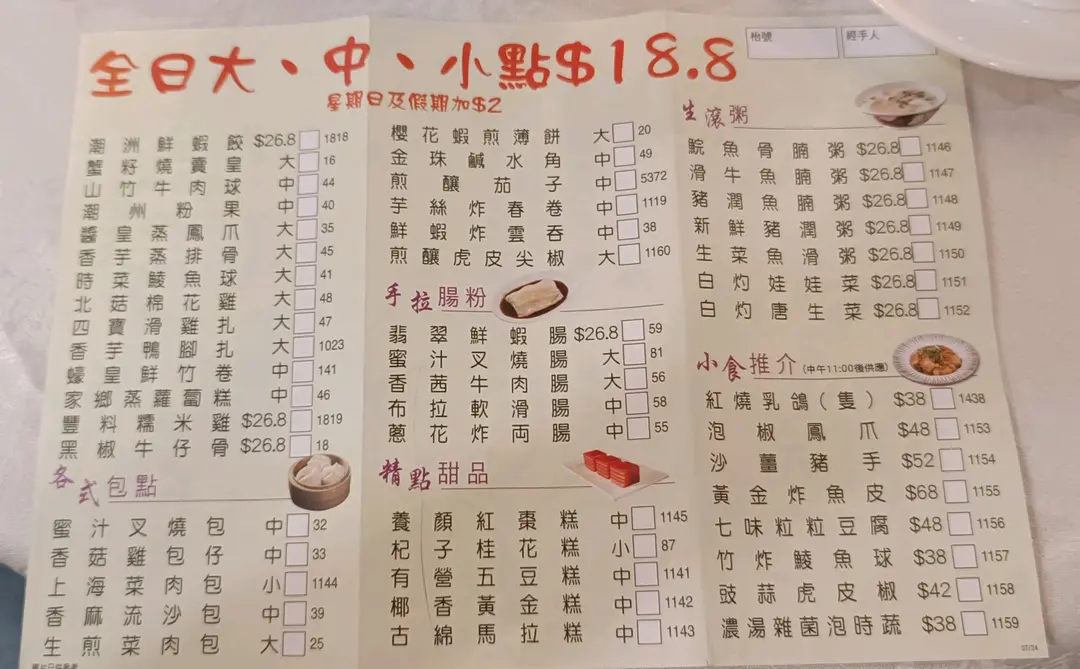 全日大、中、小點$18.8
星期日及假期加$2
枱號
經手人
潮洲鮮蝦餃 $26.8 1818
蟹籽燒賣皇 大 16
山竹牛肉球 中 44
潮州粉果 中 40
醬皇蒸鳳爪 大 35
香芋蒸排骨 大 45
時菜鯪魚球 大 41
北菇棉花雞 大 48
四寶滑雞扎 大 47
香芋鴨腳扎 大 1023
蠔皇鮮竹卷 中 141
家鄉蒸蘿蔔糕 中 46
豐料糯米雞 $26.8 1819
黑椒牛仔骨 $26.8 18
各式包點
蜜汁叉燒包 中 32
香菇雞包仔 中 33
上海菜肉包 小 1144
香麻流沙包 中 39
生煎菜肉包 大 25
櫻花蝦煎薄餅 大 20
金珠鹹水角 中 49
煎釀茄子 中 5372
芋絲炸春卷 中 1119
鮮蝦炸雲吞 中 38
煎釀虎皮尖椒 大 1160
手拉腸粉
翡翠鮮蝦腸 $26.8 59
蜜汁叉燒腸 大 81
香茜牛肉腸 大 56
布拉軟滑腸 中 58
蔥花炸両腸 中 55
精點甜品
養顏紅棗糕 中 1145
杞子桂花糕 小 87
有營五豆糕 中 1141
椰香黃金糕 中 1142
古綿馬拉糕 中 1143
生滾粥
鯇魚骨腩粥 $26.8 1146
滑牛魚腩粥 $26.8 1147
豬潤魚腩粥 $26.8 1148
新鮮豬潤粥 $26.8 1149
生菜魚滑粥 $26.8 1150
白灼娃娃菜 $26.8 1151
白灼唐生菜 $26.8 1152
小食推介(中午11:00後供應)
紅燒乳鴿(隻) $38 1438
泡椒鳳爪 $48 1153
沙薑豬手 $52 1154
黃金炸魚皮 $68 1155
七味粒粒豆腐 $48 1156
竹炸鯪魚球 $38 1157
豉蒜虎皮椒 $42 1158
濃湯雜菌泡時蔬 $38 1159
07/24